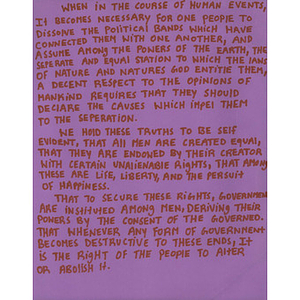 WHEN IN THE COURSE OF HUMAN EVENTS,
IT BECOMES NECESSARY FOR ONE PEOPLE TO
DISSOLVE THE POLITICAL BANDS WHICH HAVE
CONNECTED THEM WITH ONE ANOTHER, AND
ASSUME AMONG THE POWERS OF THE EARTH, THE
SEPERATE AND EQUAL STATION TO WHICH THE LAWS
OF NATURE AND NATURES GOD ENTITLE THEM,
A DECENT RESPECT TO THE OPINIONS OF
MANKIND REQUIRES THAT THEY SHOULD
DECLARE THE CAUSES WHICH IMPEL THEM
TO THE SEPERATION.
WE HOLD THESE TRUTHS TO BE SELF
EVIDENT, THAT ALL MEN ARE CREATED EQUAL,
THAT THEY ARE ENDOWED BY THEIR CREATOR
WITH CERTAIN UNALIENABLE RIGHTS, THAT AMONG
THESE ARE LIFE, LIBERTY, AND THE PERSUIT
OF HAPPINESS.
THAT TO SECURE THESE RIGHTS, GOVERNMENT
ARE INSTITUTED AMONG MEN, DERIVING THEIR
POWERS BY THE CONSENT OF THE GOVERNED.
THAT WHENEVER ANY FORM OF GOVERNMENT
BECOMES DESTRUCTIVE TO THESE ENDS, IT
IS THE RIGHT OF THE PEOPLE TO ALTER
OR ABOLISH IT.